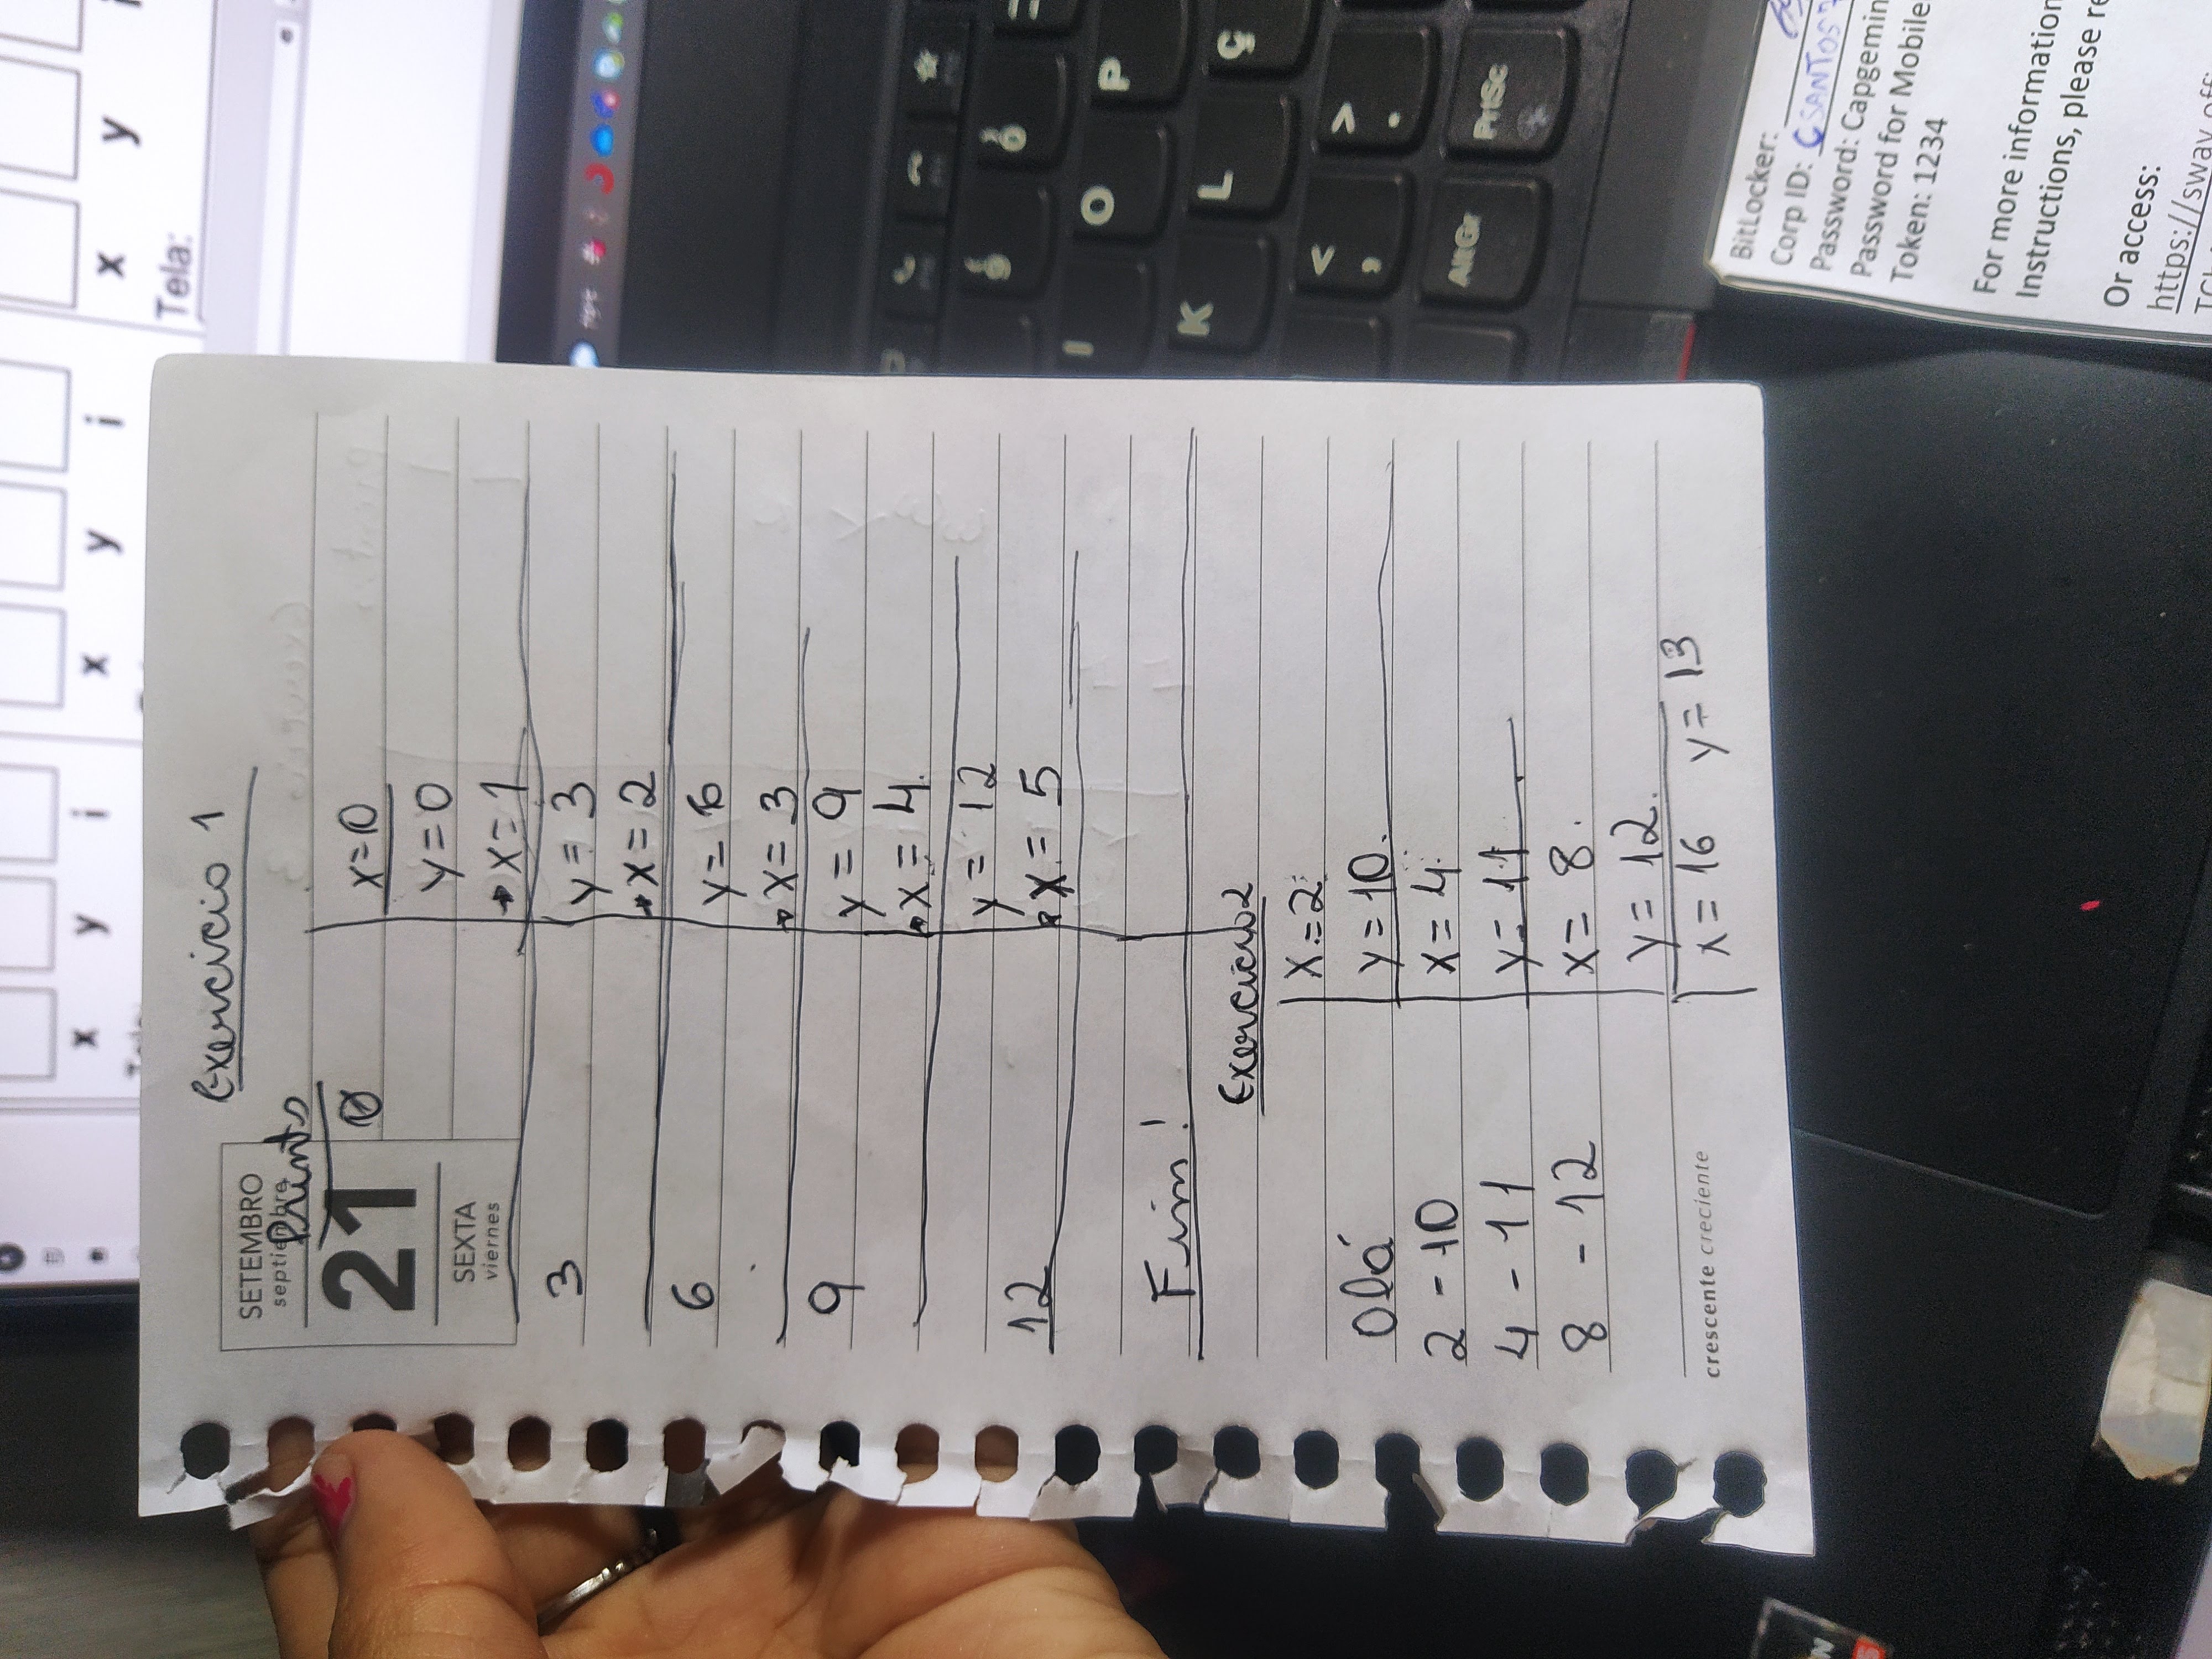 x y i x y i x y
Tela:
Exercicio 1
SETEMBRO
septiembre
Prints
21
SEXTA
viernes
0 x=0
y=0
x=1
3 y = 3
x = 2
6 y = 6
x = 3
9 y = 9
x = 4.
y = 12
12 x = 5
Fim!
Exercicio 2
x = 2
Olá y = 10.
2 - 10 x = 4
4 - 11 y = 11
8 - 12 x = 8.
y = 12.
x = 16 y = 13
crescente creciente
I O P
K L Ç
< ,
> .
AltGr PrtSc
BitLocker:
Corp ID: CSANTOS
Password:
Password for Mobile
Token: 1234
For more information
Instructions, please
Or access:
https://sway